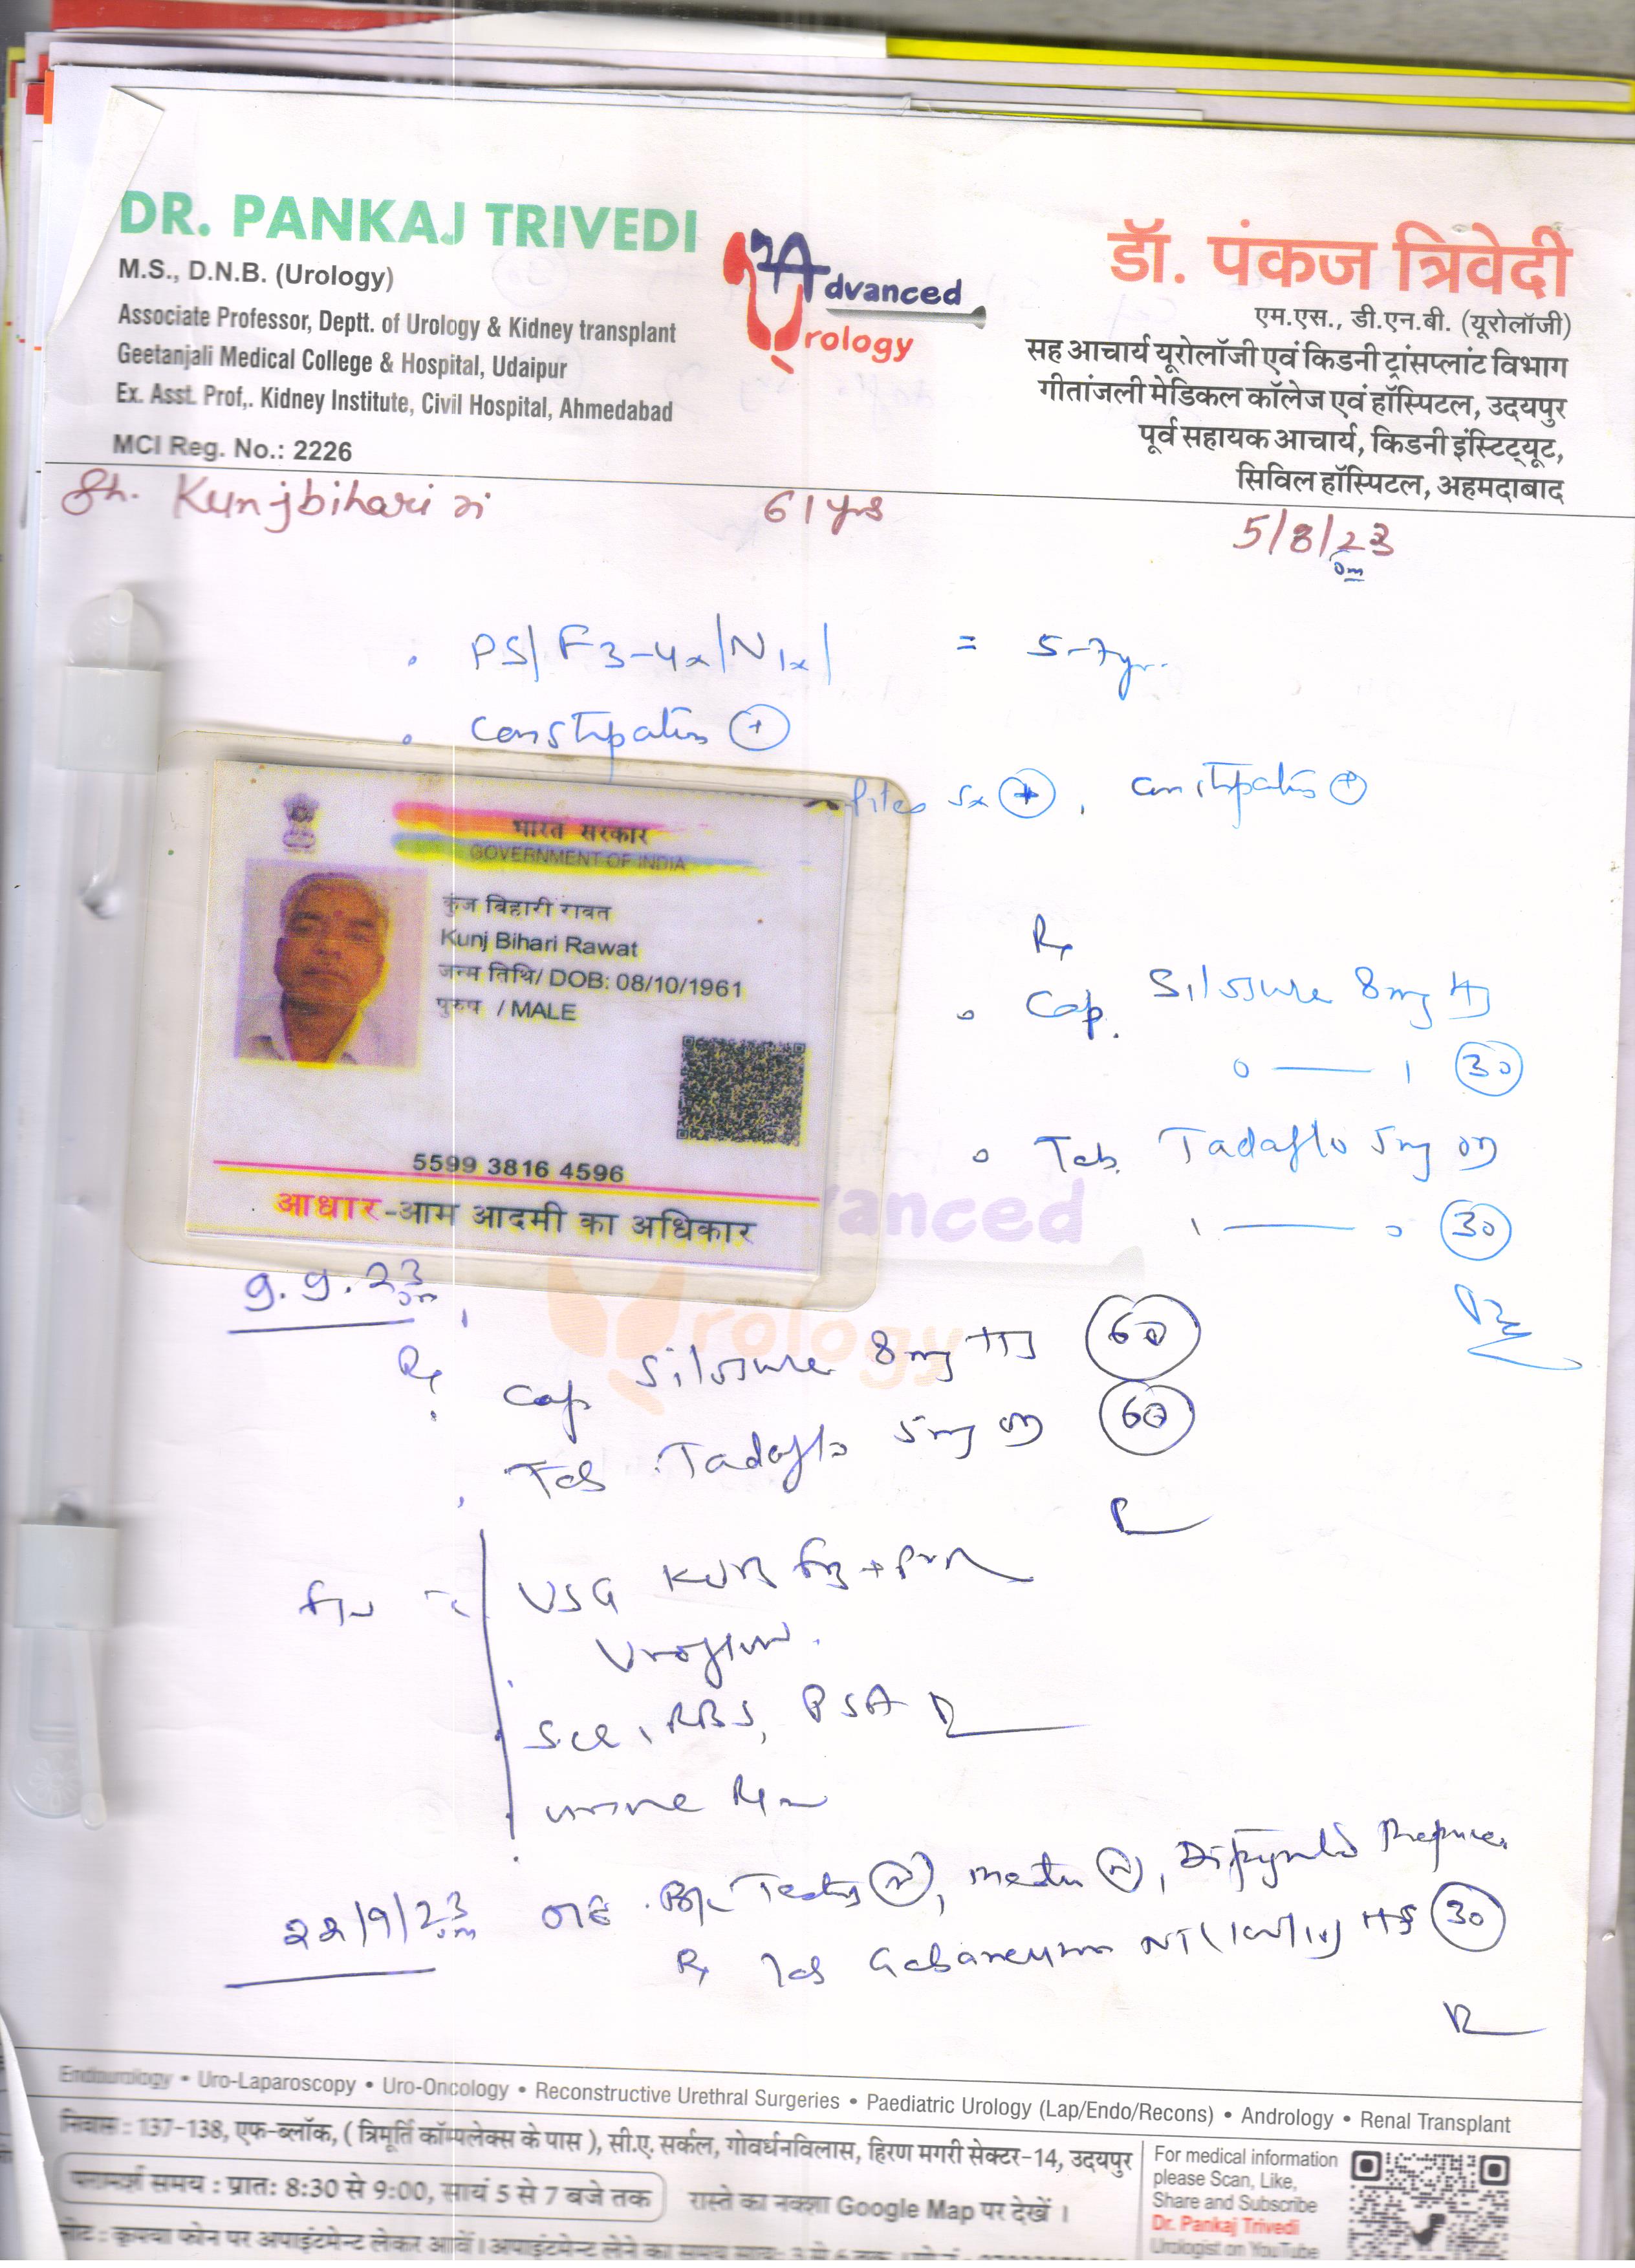 DR. PANKAJ TRIVEDI
M.S., D.N.B. (Urology)
Associate Professor, Deptt. of Urology & Kidney transplant
Geetanjali Medical College & Hospital, Udaipur
Ex. Asst. Prof,. Kidney Institute, Civil Hospital, Ahmedabad
MCI Reg. No.: 2226
Advanced
Urology
डॉ. पंकज त्रिवेदी
एम.एस., डी.एन.बी. (यूरोलॉजी)
सह आचार्य यूरोलॉजी एवं किडनी ट्रांसप्लांट विभाग
गीतांजली मेडिकल कॉलेज एवं हॉस्पिटल, उदयपुर
पूर्व सहायक आचार्य, किडनी इंस्टिट्यूट,
सिविल हॉस्पिटल, अहमदाबाद
Sh. Kunjbihari ji 61 yrs
5/8/23
PS/ F3-4x/N1x/ = 5-7yr.
Constipation +
Piles Sx +, Constipation +
भारत सरकार
GOVERNMENT OF INDIA
कुंज बिहारी रावत
Kunj Bihari Rawat
जन्म तिथि/ DOB: 08/10/1961
पुरुष / MALE
5599 3816 4596
आधार-आम आदमी का अधिकार
Rx
Cap. Silosure 8mg HS
0 — 1 30
Tab. Tadaflo 5mg OD
1 — 0 30
anced
rology
9.9.23
Rx
Cap Silosure 8mg HS 60
Tab Tadaflo 5mg OD 60
USG KUB + PVR
Uroflow.
SCR, RBS, PSA
Urine R/M
22/9/23 O/E B/L Testis N, meatus N, Prepuce
Rx Tab Gabaneuron NT (100/10) HS 30
Endourology • Uro-Laparoscopy • Uro-Oncology • Reconstructive Urethral Surgeries • Paediatric Urology (Lap/Endo/Recons) • Andrology • Renal Transplant
निवास : 137-138, एफ-ब्लॉक, ( त्रिमूर्ति कॉम्पलेक्स के पास ), सी.ए. सर्कल, गोवर्धनविलास, हिरण मगरी सेक्टर-14, उदयपुर
परामर्श समय : प्रात: 8:30 से 9:00, सायं 5 से 7 बजे तक
रास्ते का नक्शा Google Map पर देखें ।
नोट : कृपया फोन पर अपाइंटमेन्ट लेकर आवें। अपाइंटमेन्ट लेने का समय
For medical information
please Scan, Like,
Share and Subscribe
Dr. Pankaj Trivedi
Urologist on YouTube